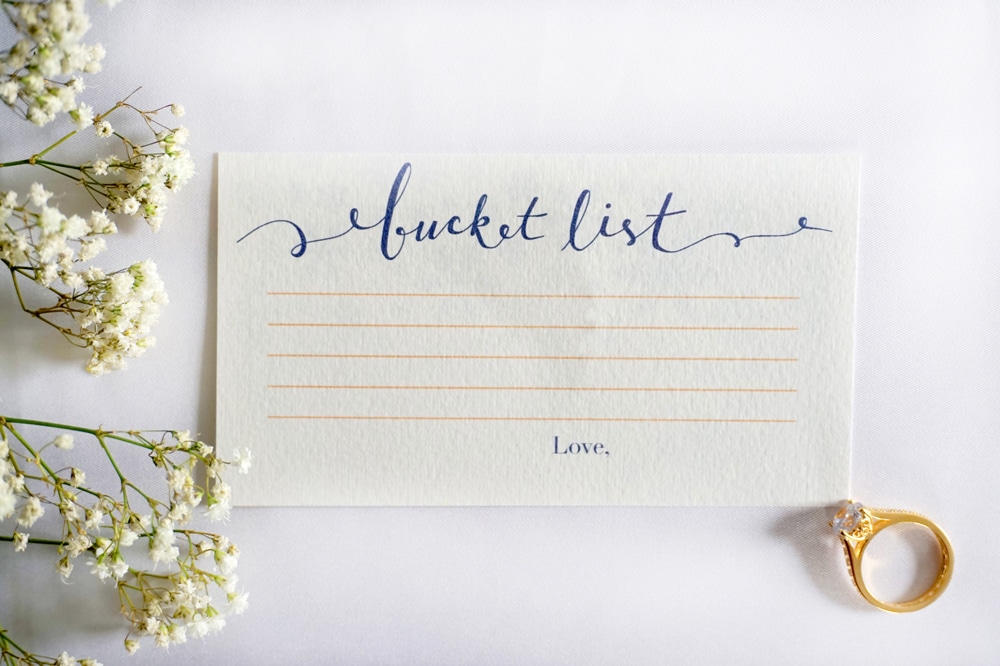 bucket list
Love,